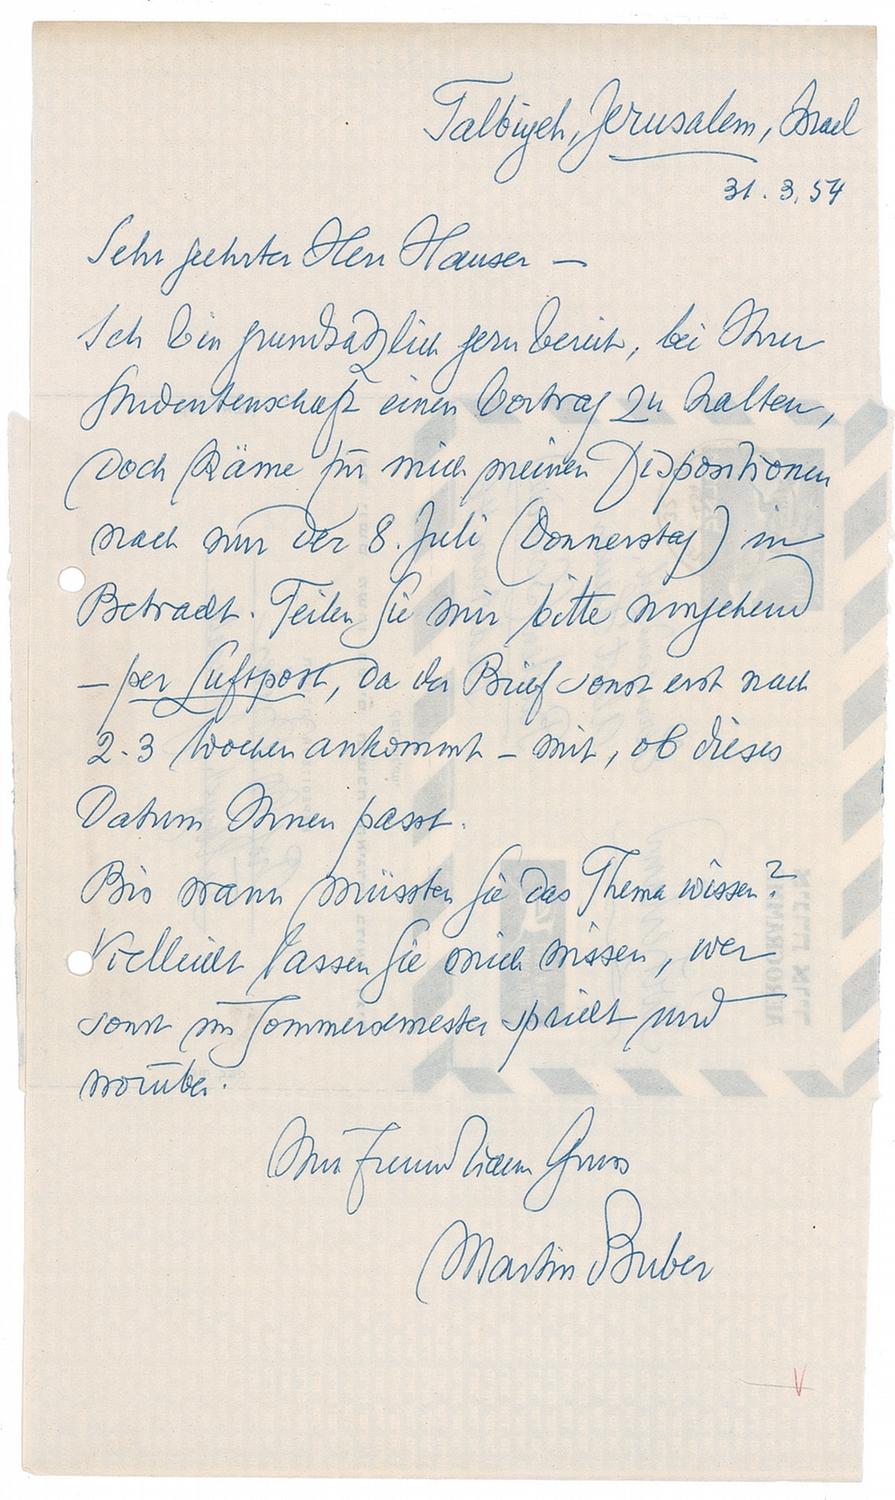 Talbiyeh, Jerusalem, Israel
31.3.54
Sehr geehrter Herr Hauser –
Ich bin grundsätzlich gern bereit, bei Ihrer
Studentenschaft einen Vortrag zu halten,
doch käme für mich meinen Dispositionen
nach nur der 8. Juli (Donnerstag) in
Betracht. Teilen Sie mir bitte umgehend
– per Luftpost, da der Brief sonst erst nach
2-3 Wochen ankommt – mit, ob dieses
Datum Ihnen passt.
Bis wann müssten Sie das Thema wissen?
Vielleicht lassen Sie mich wissen, wer
sonst im Sommersemester spricht und
worüber.
Mit freundlichem Gruss
Martin Buber
AEROGRAMME